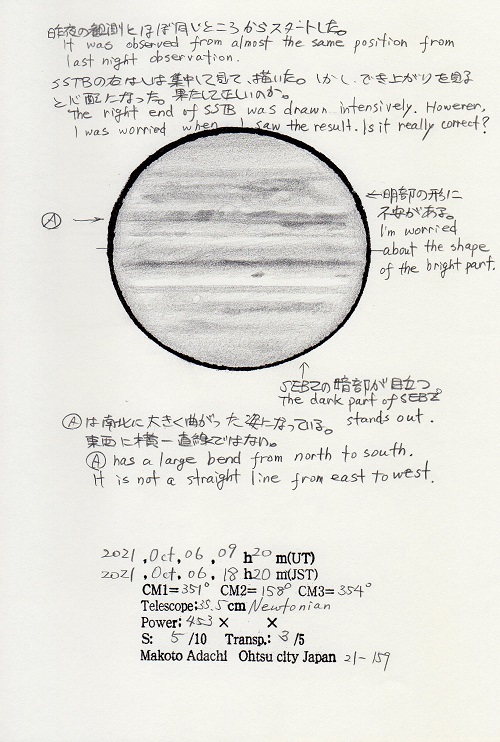 昨夜の観測とほぼ同じところからスタートした。
It was observed from almost the same position from
last night observation.
SSTBの右はしは集中して見て、描いた。しかし、でき上がりを見る
と心配になった。果たして正しいのか。
The right end of SSTB was drawn intensively. However,
I was worried when I saw the result. Is it really correct?
←明部の形に
不安がある。
I'm worried
about the shape
of the bright part.
Ⓐ →
↑
SEBZの暗部が目立つ。
The dark part of SEBZ
stands out.
Ⓐは南北に大きく曲がった姿になっている。
東西に横一直線ではない。
Ⓐ has a large bend from north to south.
It is not a straight line from east to west.
2021 , Oct, 06 , 09 h20 m(UT)
2021 , Oct, 06 , 18 h20 m(JST)
CM1=351° CM2=158° CM3=354°
Telescope:35.5cm Newtonian
Power:453× ×
S: 5 /10 Transp.: 3 /5
Makoto Adachi Ohtsu city Japan 21-159